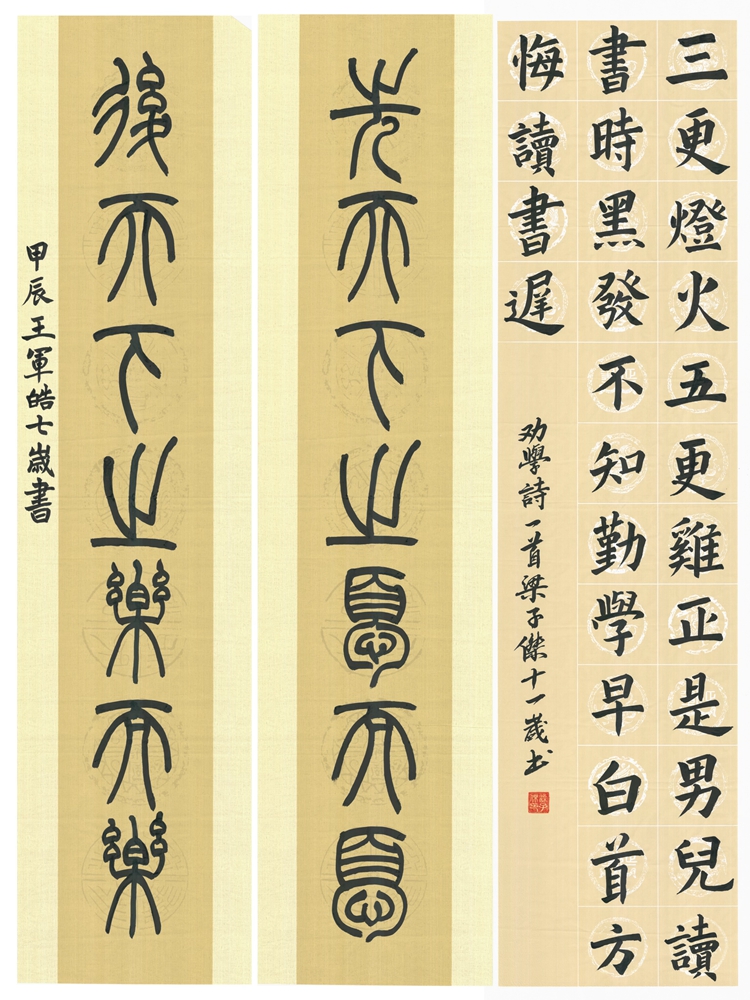 三更燈火五更雞正是男兒讀
書時黑發不知勤學早白首方
悔讀書遲
劝學詩一首梁子傑十一歲书
先天下之憂而憂
後天下之樂而樂
甲辰王軍皓七歲書